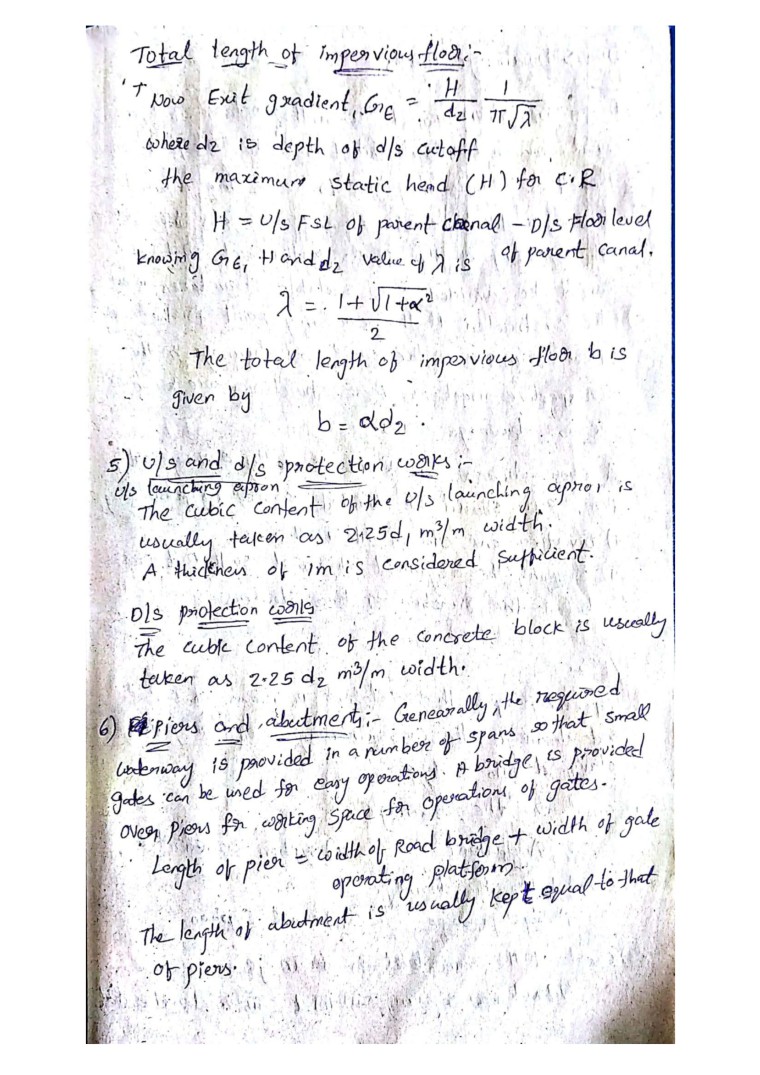 Total length of impervious floor:-
Now Exit gradient, GE = H/d2 1/π√λ
where d2 is depth of d/s cutoff
the maximum static head (H) for C.R
H = U/s FSL of parent canal - D/S Floor level
of parent canal.
Knowing GE, H and d2 value of λ is
λ = 1+√1+α²/2
The total length of impervious floor b is
given by
b = αd2.
5) U/s and d/s protection works:-
U/s launching apron
The cubic content of the U/s launching apron is
usually taken as 2.25d1 m³/m width.
A thickness of 1m is considered sufficient.
D/s protection works
The cubic content of the concrete block is usually
taken as 2.25 d2 m³/m width.
6) Piers and abutments:- Genearally, the required
waterway is provided in a number of spans so that small
gates can be used for easy operations. A bridge is provided
over piers for working space for operations of gates.
Length of pier = width of Road bridge + width of gate
operating platform.
The length of abutment is usually kept equal to that
of piers.